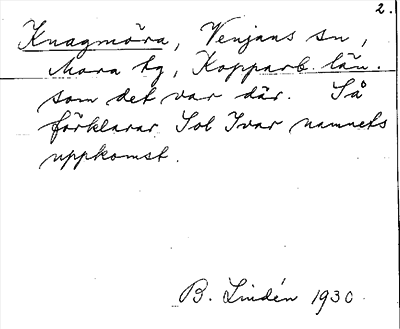 2.
Knagmöra, Venjans sn,
Mora tg, Kopparb. län.
som det var där. Så
förklarar Sol Ivar namnets
uppkomst.
B. Lindén 1930.